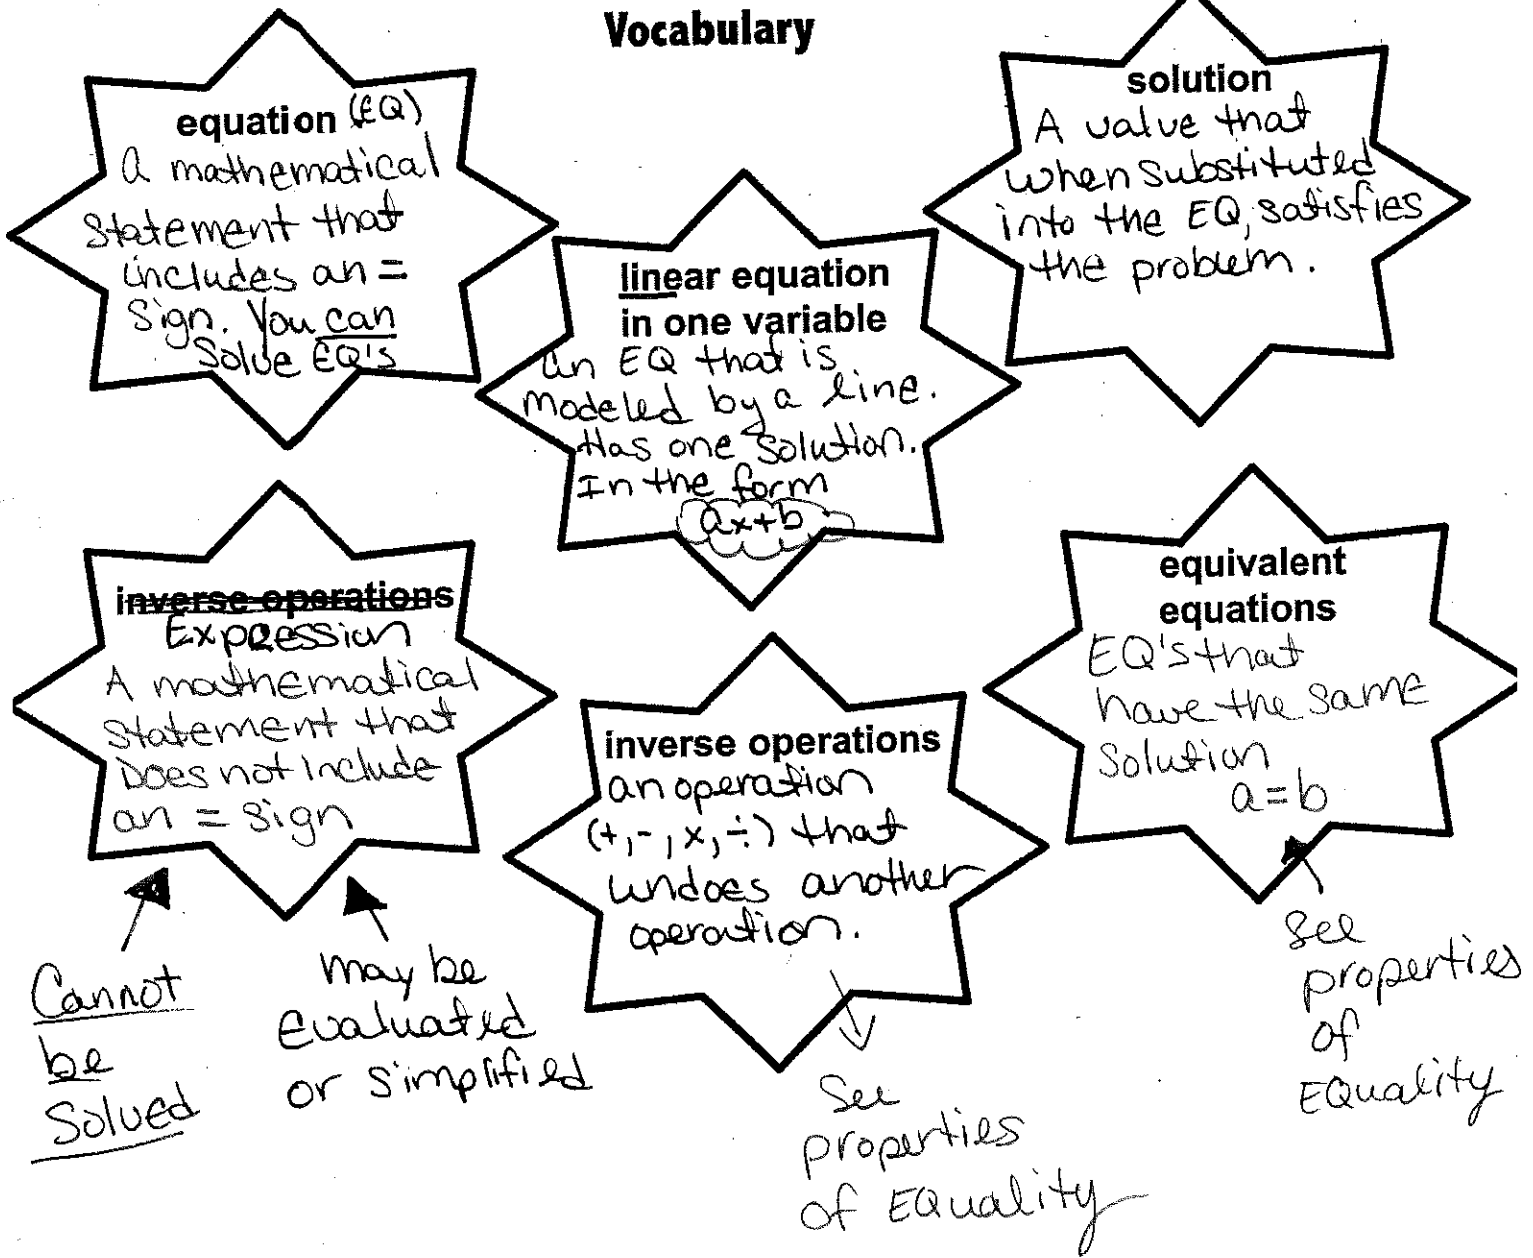 Vocabulary
equation (EQ)
a mathematical
statement that
includes an =
sign. You can
solve EQ's
linear equation
in one variable
an EQ that is
modeled by a line.
Has one solution.
In the form
ax+b
solution
A value that
when substituted
into the EQ, satisfies
the problem.
inverse operations
Expression
A mathematical
statement that
Does not include
an = sign
Cannot
be
Solved
may be
evaluated
or simplified
inverse operations
an operation
(+,-,x,÷) that
undoes another
operation.
See
properties
of EQuality
equivalent
equations
EQ's that
have the same
solution
a=b
See
properties
of
EQuality